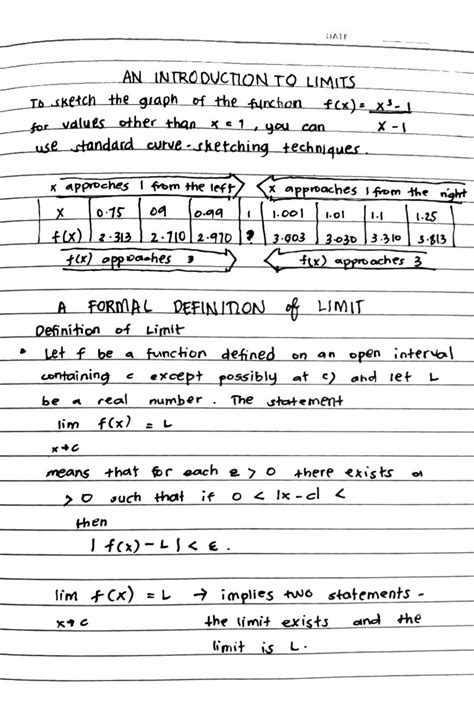 DATE
AN INTRODUCTION TO LIMITS
To sketch the graph of the function f(x) = x³-1
for values other than x = 1, you can x - 1
use standard curve-sketching techniques.
x approches 1 from the left x approaches 1 from the right
x 0.75 09 0.99 1 1.001 1.01 1.1 1.25
f(x) 2.313 2.710 2.970 ? 3.003 3.030 3.310 3.813
f(x) approaches 3 f(x) approaches 3
A FORMAL DEFINITION of LIMIT
Definition of Limit
• Let f be a function defined on an open interval
containing c except possibly at c) and let L
be a real number. The statement
lim f(x) = L
x→c
means that for each ε > 0 there exists a
> 0 such that if 0 < |x-c| <
then
| f(x) - L | < ε.
lim f(x) = L → implies two statements -
x→c the limit exists and the
limit is L.